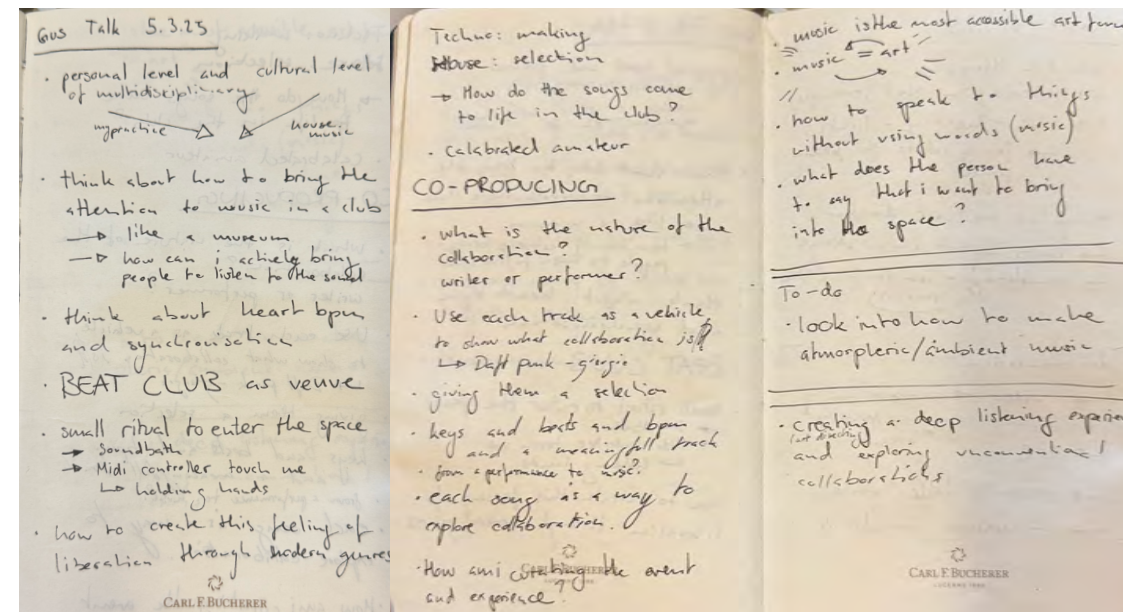 Gus Talk 5.3.25
· personal level and cultural level
of multidisciplinary
my practice
house
music
· think about how to bring the
attention to music in a club
→ like a museum
→ how can i actively bring
people to listen to the sound
· think about heart bpm
and synchronisation
· BEAT CLUB as venue
· small ritual to enter the space
→ Soundbath
→ Midi controller touch me
↳ holding hands
· how to create this feeling of
liberation through modern genres
CARL F. BUCHERER
Techno: making
House: selection
→ How do the songs come
to life in the club?
· celabrated amateur
CO-PRODUCING
· what is the nature of the
collaboration?
writer or performer?
· Use each track as a vehicle
to show what collaboration is?
↳ Daft punk - giorgio
· giving them a selection
· keys and beats and bpm
and a meaningfull track
· from a performance to music?
· each song is a way to
explore collaboration.
· How am i curating the event
and experience?
· music is the most accessible art form
· music = art
· how to speak to things
without using words (music)
· what does the person have
to say that i want to bring
into the space?
To-do
· look into how to make
atmorpheric/ambient music
· creating a deep listening experien
and exploring unconventional
collaborations
CARL F. BUCHERER
LUCERNE 1888